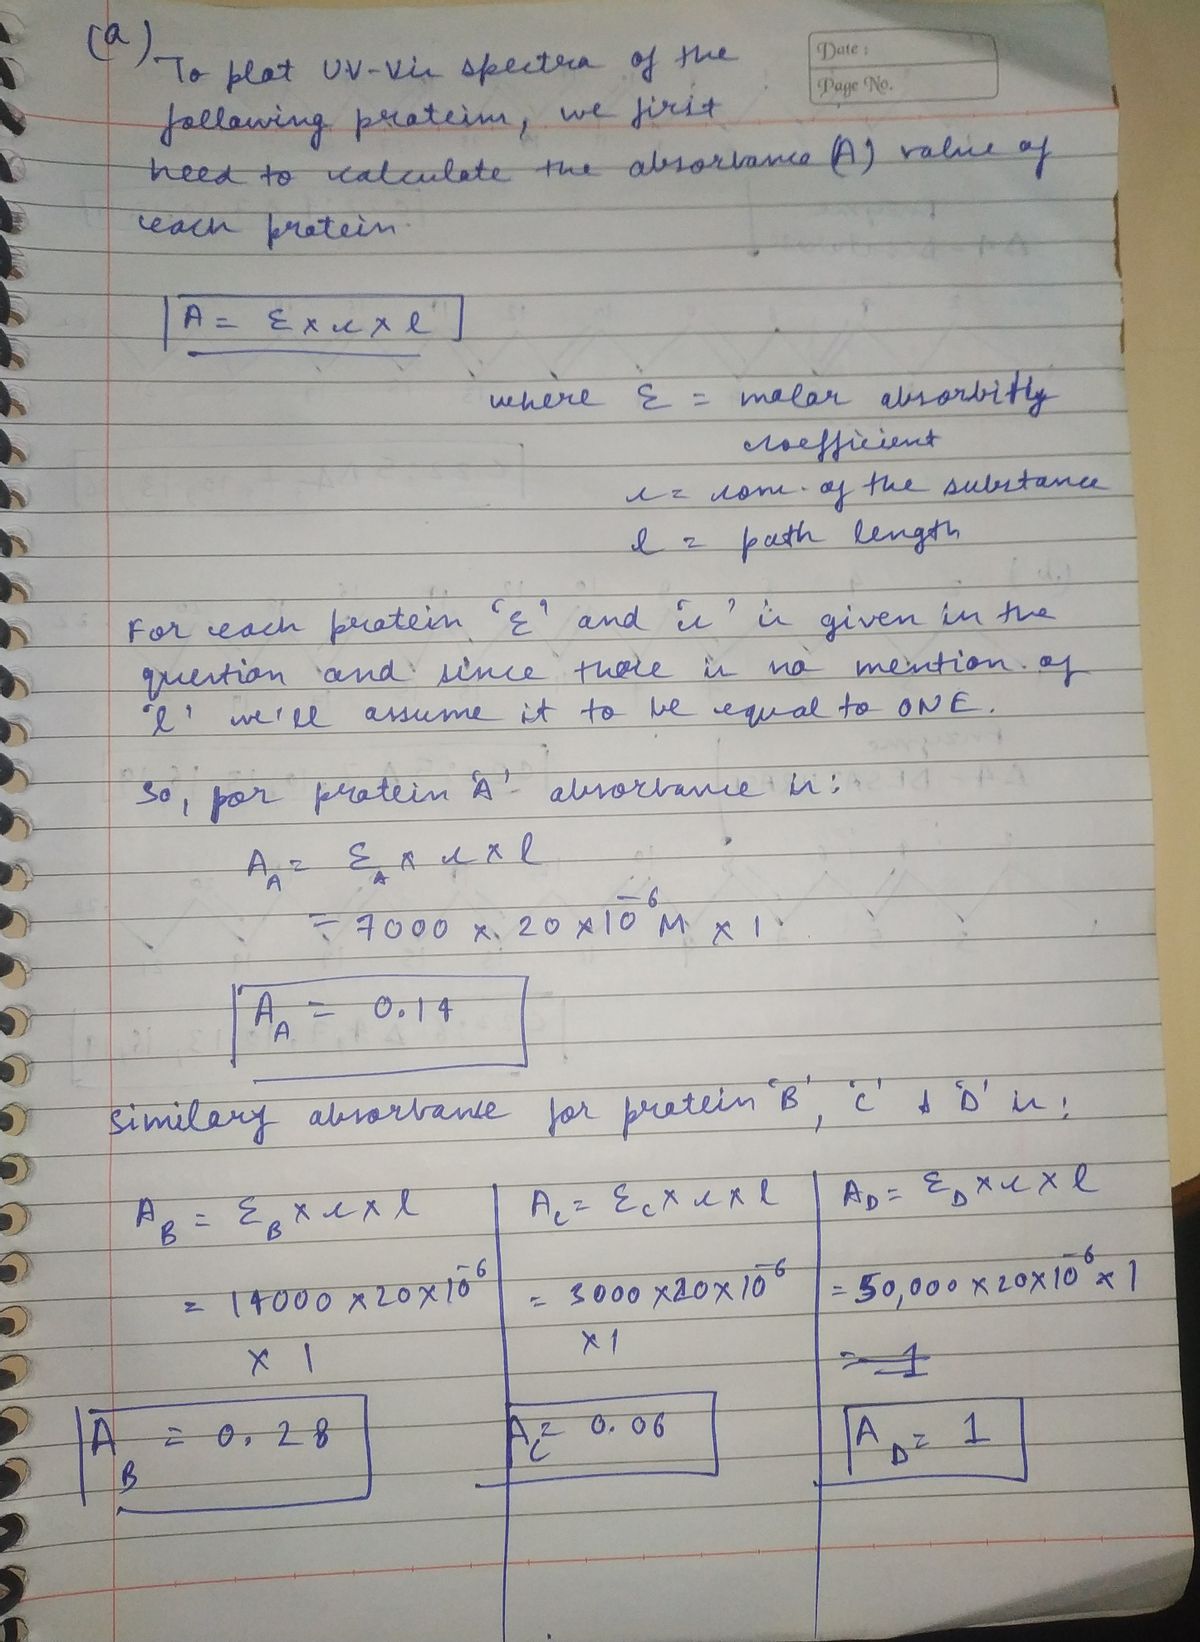 (a)
Date :
Page No.
To plot UV-Vis spectra of the
following proteins, we first
need to calculate the absorbance (A) value of
each protein.
A = Ɛ x c x l
where Ɛ = molar absorbitly
coefficient
c = conc. of the substance
l = path length
For each protein 'Ɛ' and 'c' is given in the
question and since there is no mention of
'l' we'll assume it to be equal to ONE.
So, for protein 'A' absorbance is:
A_A = Ɛ_A x c x l
= 7000 x 20 x 10^-6 M x 1
A_A = 0.14
similary absorbance for protein 'B', 'C' & 'D' is:
A_B = Ɛ_B x c x l
= 14000 x 20 x 10^-6
x 1
A_B = 0.28
A_C = Ɛ_C x c x l
= 3000 x 20 x 10^-6
x 1
A_C = 0.06
A_D = Ɛ_D x c x l
= 50,000 x 20 x 10^-6 x 1
= 1
A_D = 1